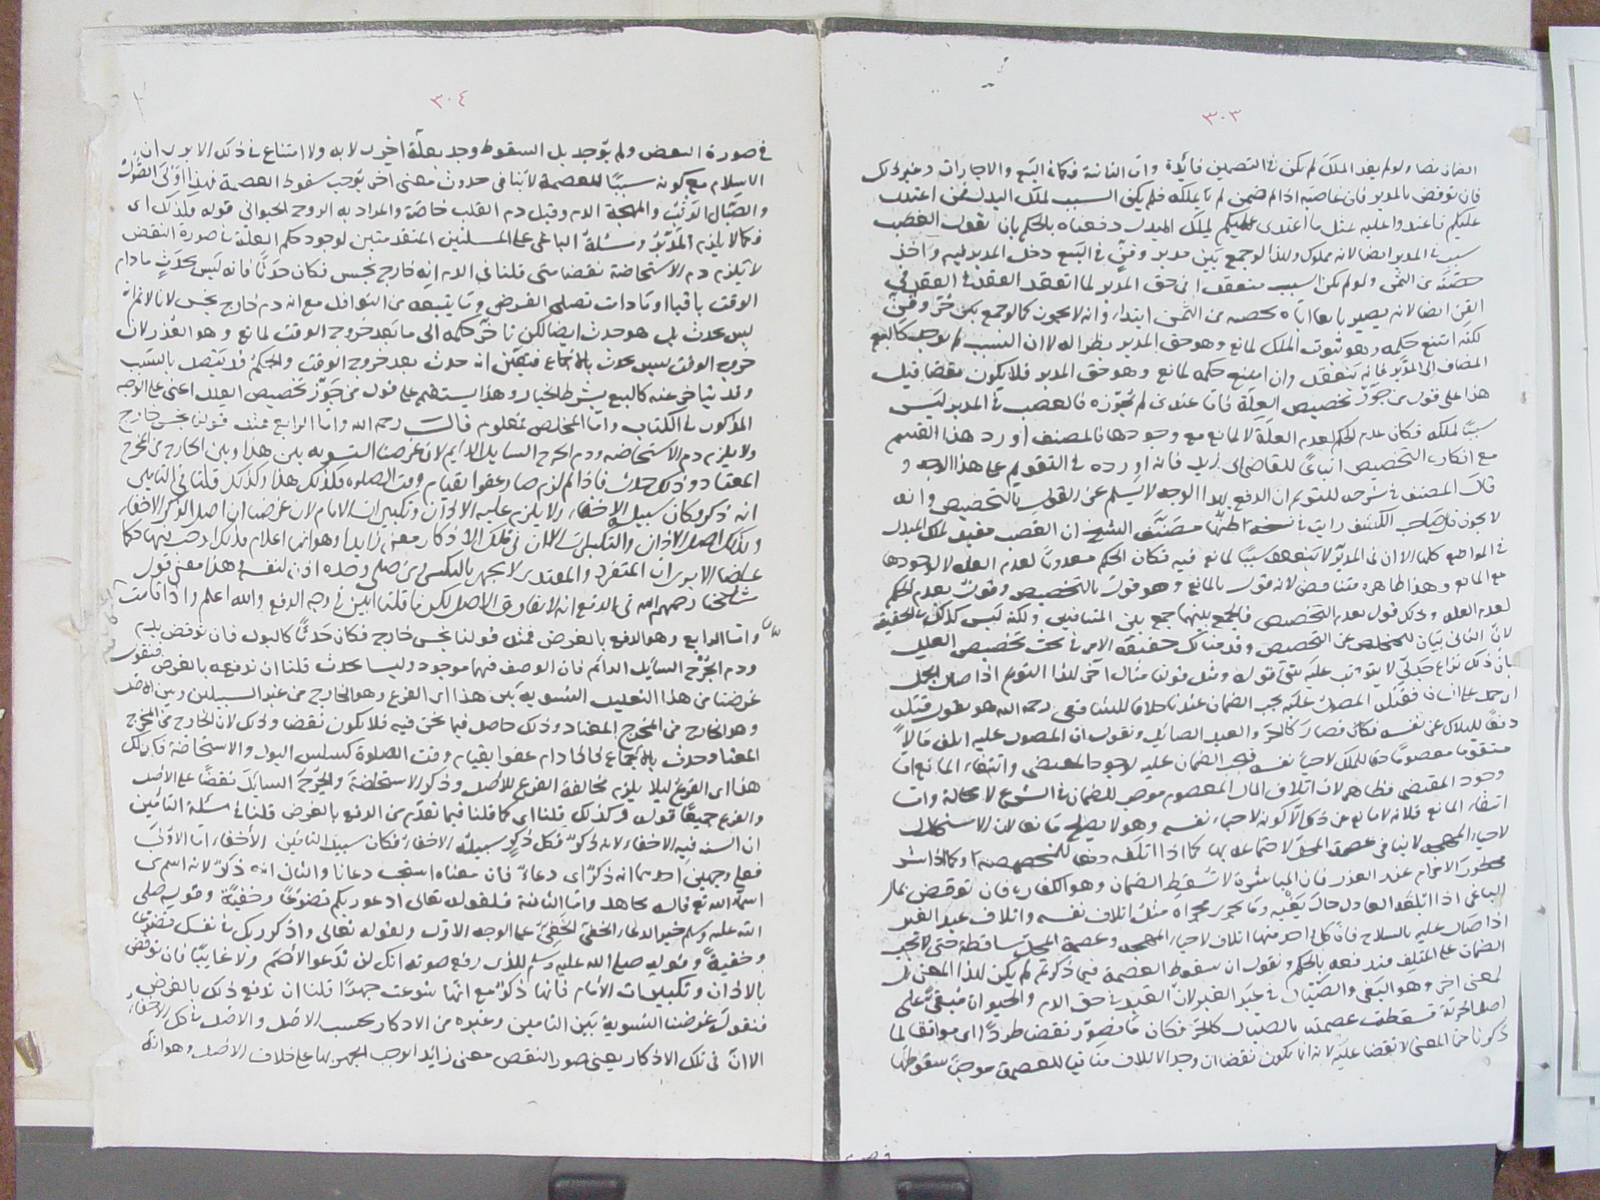 ٣٠٣
الضمان نصا ولو لم يفد الملك لم تكن في التضمين فائدة واما الثانية فكما في البيع والاجارات وغير ذلك
فان نوقض بالمدبر فان غاصبه اذا ضمن لم يملكه فلم يكن السبب لملك البدل فمن اعتدى
عليكم فاعتدوا عليه بمثل ما اعتدى عليكم لملك المبدل دفعناه بالحكم بان نقول الغصب
سبب في المدبر ايضا لانه مملوك ولهذا لو جمع بين مدبر وقن في البيع دخل المدبر فيه واخذ
حصته من الثمن ولو لم يكن السبب منعقدا في حق المدبر لما انعقد العقد في
القن ايضا لانه يصير بائعا اياه بحصته من الثمن ابتداء وانه لا يجوز كما لو جمع بين حر وقن
لكنه امتنع حكمه وهو ثبوت الملك لمانع وهو حق المدبر نظرا له لا ان السبب لم يوجد كالبيع
المضاف الى المدبر فانه ينعقد وان امتنع حكمه لمانع وهو حق المدبر فلا يكون نقضا قيل
هذا على قول من جوز تخصيص العلة فاما عند من لم يجوزه فالغصب في المدبر ليس
سببا لملكه فكان عدم الحكم لعدم العلة لا لمانع مع وجودها فالمصنف اورد هذا القسم
مع انكاره التخصيص اتباعا للقاضي ابي زيد فانه اورده في التقويم على هذا الوجه و
قال المصنف في شرحه للتقويم ان الدفع بهذا الوجه لا يسلم عن القول بالتخصيص وانه
لا يجوز قال صاحب الكشف رايت في نسخة اظنها مصنف الشيخ ان الغصب مفيد لملك البدل
في المواضع كلها الا ان في المدبر لا ينعقد سببا لمانع فيه فكان الحكم معدوما لعدم العلة لا لوجودها
مع المانع وهذا ظاهره متناقض لانه قول بالمانع وهو قول بالتخصيص وقول بعدم الحكم
لعدم العلة وذلك قول بعدم التخصيص فالجمع بينهما جمع بين المتنافيين ولكنه ليس كذلك في الحقيقة
لان الثاني بيان للتخلص عن التخصيص وقد بينا لك حقيقة الامر في بحث تخصيص العلل
بان ذلك نزاع جدلي لا يترتب عليه شيء قوله ومثل قولنا مثال آخر لهذا النوع اذا صال الجمل
الرجل على انسان فقتله المصول عليه يجب الضمان عندنا خلافا للشافعي رحمه الله هو يقول قتله
دفعا للهلاك عن نفسه فكان فصار كالحر والعبد الصائل ونقول ان المصول عليه اتلف مالا
متقوما معصوما حقا للملك لاحياء نفسه فيجب الضمان عليه لوجود المقتضي وانتفاء المانع اما
وجود المقتضي فظاهر لان اتلاف المال المعصوم موجب للضمان في الشرع لا محالة واما
انتفاء المانع فلانه لا مانع عن ذلك الا كونه لاحياء نفسه وهو لا يصلح مانعا لان الاستحلال
لاحياء المهجة لا ينافي عصمة المحل لاجتماعه بها كما اذا اتلفه دفعا للمخمصة او كما اذا باشر
محظور الاحرام عند العذر فان المباشرة لا تسقط الضمان وهو الكفارة فان نوقض بمال
الباغي اذا اتلفه العادل حال بغيه وما يجري مجراه مثل اتلاف نفسه واتلاف عبد الغير
اذا صال عليه بالسلاح فان كل واحد منها اتلاف لاحياء المهجة وعصمة المحل ساقطة حتى لا يجب
الضمان على المتلف فندفعه بالحكم ونقول ان سقوط العصمة فيما ذكرتم لم يكن لهذا المعنى بل
لمعنى اخر وهو البغي والصيال في عبد الغير لان العبد في حق الدم والحيوان مبقى على
اصل الحرية فسقطت عصمته بالصيال كالحر فكان ما تصور نقضا طردا اي موافقا لما
ذكرنا من المعنى لا نقضا عليه لانه انما يكون نقضا ان وجد الاتلاف منافيا للعصمة موجبا سقوطها
٣٠٤
في صورة النقض ولم يوجد بل السقوط وجد بعلة اخرى لا به ولا امتناع في ذلك الا يرى ان
الاسلام مع كونه سببا للعصمة لا ينافي حدوث معنى اخر يوجب سقوط العصمة فهذا اولى الصول
والصيال الوثب والمهجة الدم وقيل دم القلب خاصة والمراد به الروح الحيواني قوله وكذلك اي
فكما لا يلزم المدبر ومسئلة الباغي على المسئلتين المتقدمتين لوجود حكم العلة في صورة النقض
لا يلزم دم الاستحاضة نقضا متى قلنا في الدم انه خارج نجس فكان حدثا فانه ليس بحدث ما دام
الوقت باقيا وما دامت تصلي الفرض وما يتبعه من النوافل مع انه دم خارج نجس لانا لا نم انه
ليس بحدث بل هو حدث ايضا لكن تاخر حكمه الى ما بعد خروج الوقت لمانع وهو العذر لان
خروج الوقت ليس بحدث بالاجماع فتعين انه حدث بعد خروج الوقت والحكم قد يتصل بالسبب
وقد يتأخر عنه كالبيع بشرط الخيار وهذا يستقيم على قول من جوز تخصيص العلل اعني على الوجه
المذكور في الكتاب واما المخلص فمعلوم قال رحمه الله واما الرابع فمثل قولنا نجس خارج
ولا يلزم دم الاستحاضة ودم الجرح السايل الدايم لان غرضنا التسوية بين هذا وبين الخارج من المخرج
المعتاد وذلك حدث فاذا لزم صار عفوا بقيام وقت الصلوة فكذلك هذا وكذلك قلنا في التامين
انه ذكر وكان سبيله الاخفاء ولا يلزم عليه الاذان وتكبيرات الامام لان غرضنا ان اصل الذكر الاخفاء
وكذلك اصل الاذان والتكبيرات الا ان في تلك الاذكار معنى زايدا وهو انها اعلام فلذلك اوجب فيها حكما
عارضا الا يرى ان المنفرد والمقتدي لا يجهر بالتكبير ومن صلى وحده اذن لنفسه هذا معنى قول
مشايخنا رحمهم الله في الدفع انه لا يفارق الاصل لكن ما قلنا ابين في وجه الدفع والله اعلم واذا قامت
واما الرابع وهو الدفع بالغرض فمثل قولنا نجس خارج فكان حدثا كالبول فان نوقض بدم
ودم الجرح السايل الدائم فان الوصف فيهما موجود وليسا بحدث قلنا ان ندفعه بالغرض فنقول
غرضنا من هذا التعليل التسوية بين هذا اي الفرع وهو الخارج من غير السبيلين وبين الاصل
وهو الخارج من المخرج المعتاد وذلك حاصل فيما نحن فيه فلا يكون نقضا وذلك لان الخارج من المخرج
المعتاد حدث بالاجماع لكن اذا دام عفوا بقيام وقت الصلوة كسلس البول والاستحاضة فكذلك
هذا اي الفرع ليلا يلزم مخالفة الفرع للاصل وذكر الاستحاضة والجرح السائل نقضا على الاصل
والفرع جميعا قوله وكذلك قلنا اي كما قلنا فيما تقدم من الدفع بالغرض قلنا في مسئلة التامين
ان السنة فيه الاخفاء لانه ذكر وكل ذكر سبيله الاخفاء فكان سبيل التامين الاخفاء اما الاولى
فعلى وجهين احدهما انه ذكر اي دعاء فان معناه استجب دعانا والثاني انه ذكر لانه اسم من
اسماء الله تع قاله مجاهد واما الثانية فلقوله تعالى ادعوا ربكم تضرعا وخفية وقوله صلى
الله عليه وسلم خير الدعاء الخفي الخفي على الوجه الاول ولقوله تعالى واذكر ربك في نفسك تضرعا
وخفية وقوله صلى الله عليه وسلم للذي رفع صوته انك لن تدعو الاصم ولا غائبا فان نوقض
بالاذان وتكبيرات الامام فانها ذكر مع انها شرعت جهرا قلنا ان ندفع ذلك بالغرض
فنقول غرضنا التسوية بين التامين وغيره من الاذكار بحسب الاصل والاصل في كل الاخفاء
الا ان في تلك الاذكار يعني صور النقض معنى زائدا اوجب الجهر بها على خلاف الاصل وهو انه